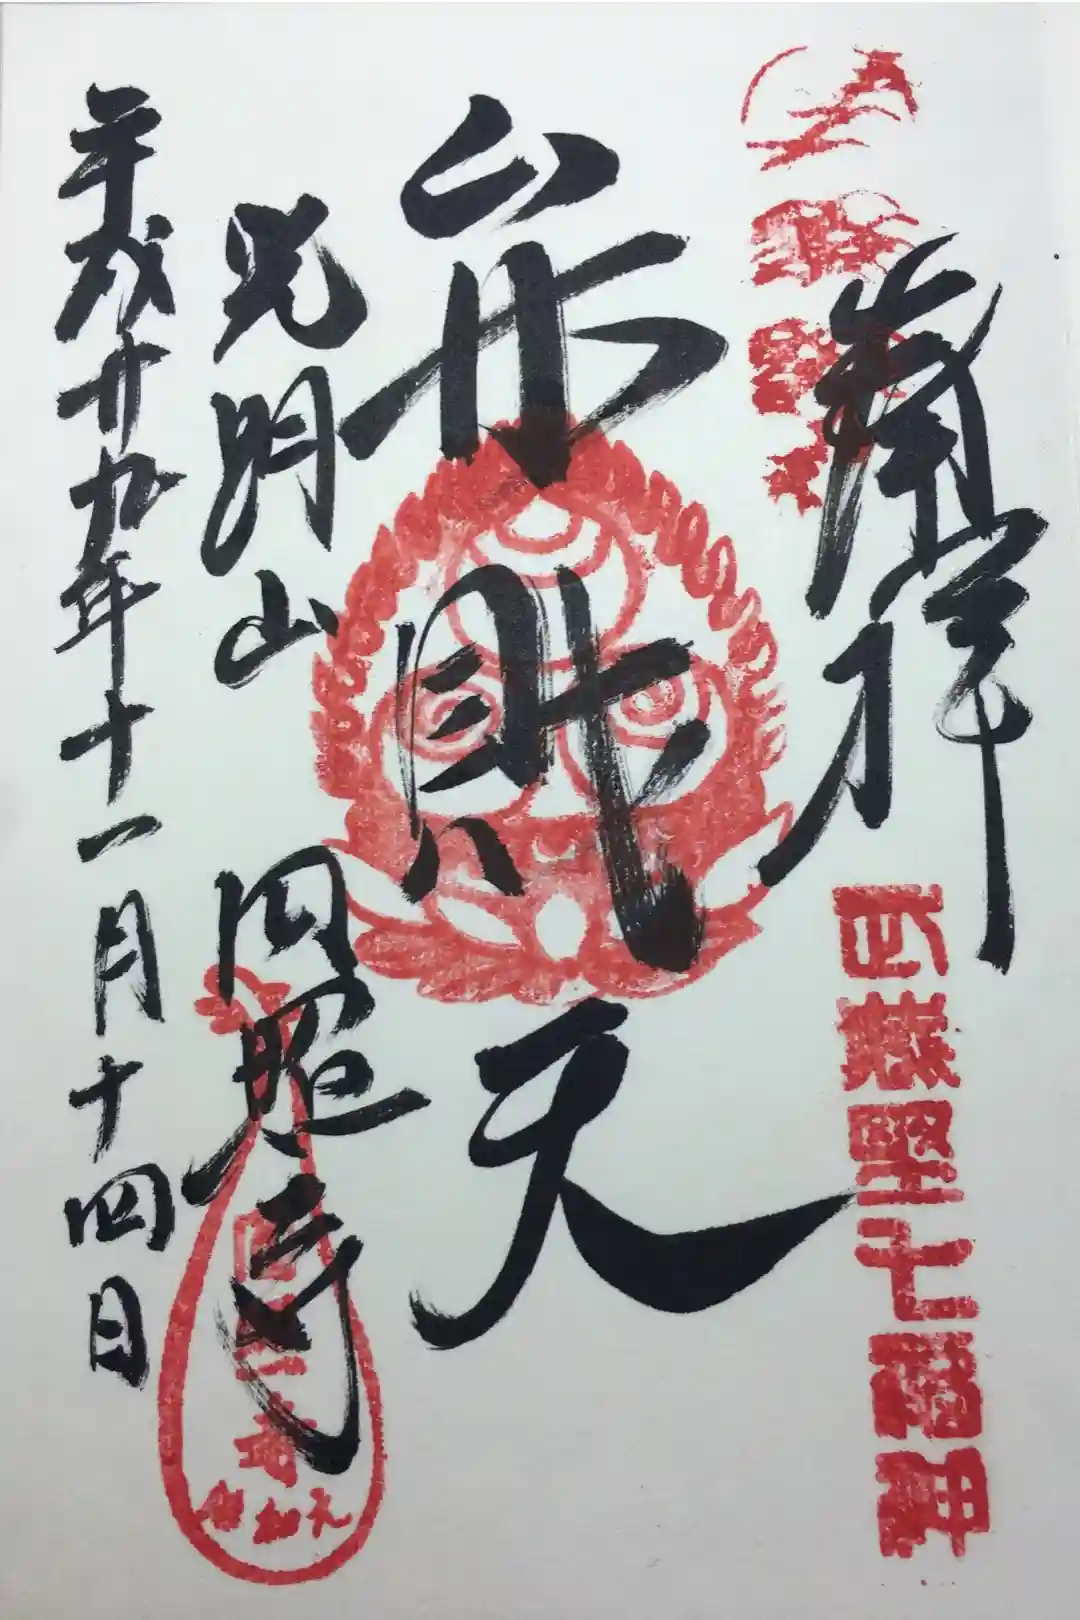 奉拝
武蔵野七福神
弁財天
光明山
円照寺
平成廿九年十一月十四日